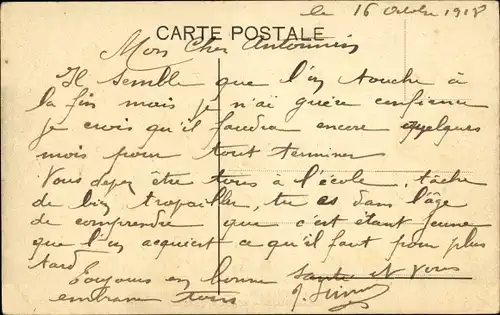 le 16 Octobre 1918
CARTE POSTALE
Mon Cher Antonnin
Il semble que l'on touche à
la fin mais je n'ai guère confiance
je crois qu'il faudra encore quelques
mois pour tout terminer
Vous devez être tous à l'école, tâche
de bien travailler, tu es dans l'âge
de comprendre que c'est étant jeune
que l'on acquiert ce qu'il faut pour plus
tard
Toujours en bonne santé et vous
embrasse tous